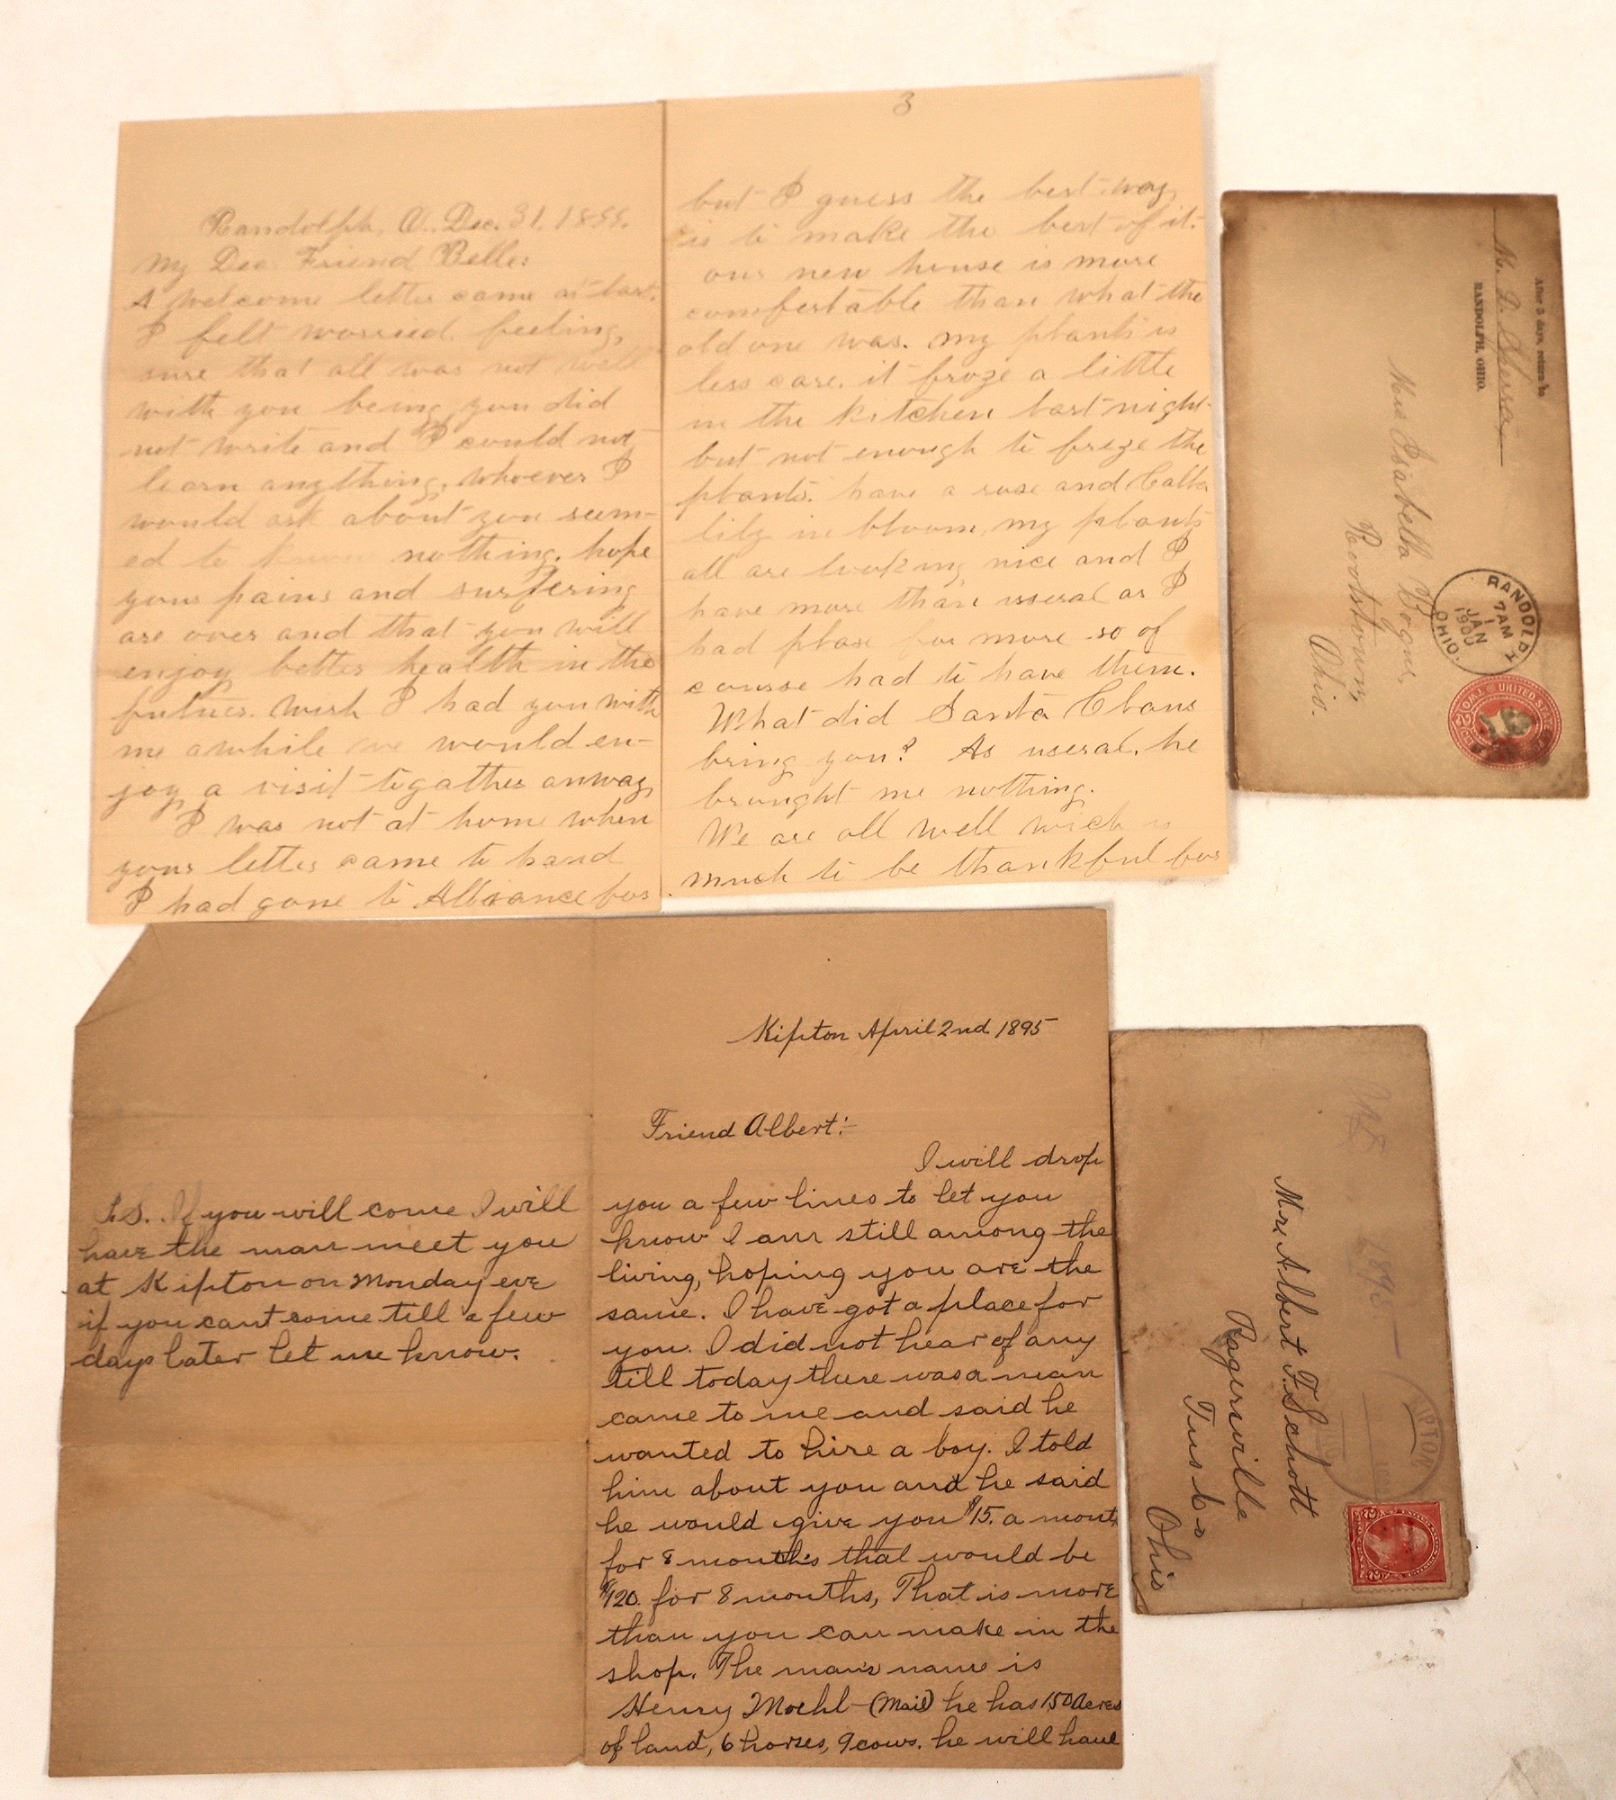 Randolph, O. Dec. 31, 1899.
My Dea Friend Belle:
A welcome letter came at last.
I felt worried feeling
sure that all was not well
with you being you did
not write and I could not
learn anything, whoever I
would ask about you seem-
ed to know nothing. hope
your pains and surfering
are over and that you will
enjoy better health in the
future. Wish I had you with
me awhile we would en-
joy a visit togather anway
I was not at home when
your letter came to hand
I had gone to Alliance for
3
but I guess the best way
is to make the best of it.
our new house is more
comfortable than what the
old one was. my plants is
less care. it froze a little
in the kitchen last night
but not enough to freze the
plants. have a rose and Calla
lily in bloom, my plants
all are looking nice and I
have more than useral as I
had plase for more so of
course had to have them.
What did Santa Claus
bring you? As useral, he
brought me nothing.
We are all well wich is
much to be thankful for
After 5 days, return to
RANDOLPH, OHIO.
Miss Isabella Bogue,
Rootstown,
Ohio.
RANDOLPH
7AM
JAN
1
1900
OHIO.
UNITED STATES
P.S. If you will come I will
have the man meet you
at Kipton on Monday eve
if you cant come till a few
days later let me know.
Kipton April 2nd 1895
Friend Albert:-
I will drop
you a few lines to let you
know I am still among the
living, hoping you are the
same. I have got a place for
you. I did not hear of any
till today there was a man
came to me and said he
wanted to hire a boy. I told
him about you and he said
he would give you $15. a month
for 8 months that would be
$120. for 8 months, That is more
than you can make in the
shop. The man's name is
Henry Moehl (Mail) he has 150 Acres
of land, 6 horses, 9 cows. he will have
Mr. Albert F. Schott
Ragersville
Tus Co
Ohio